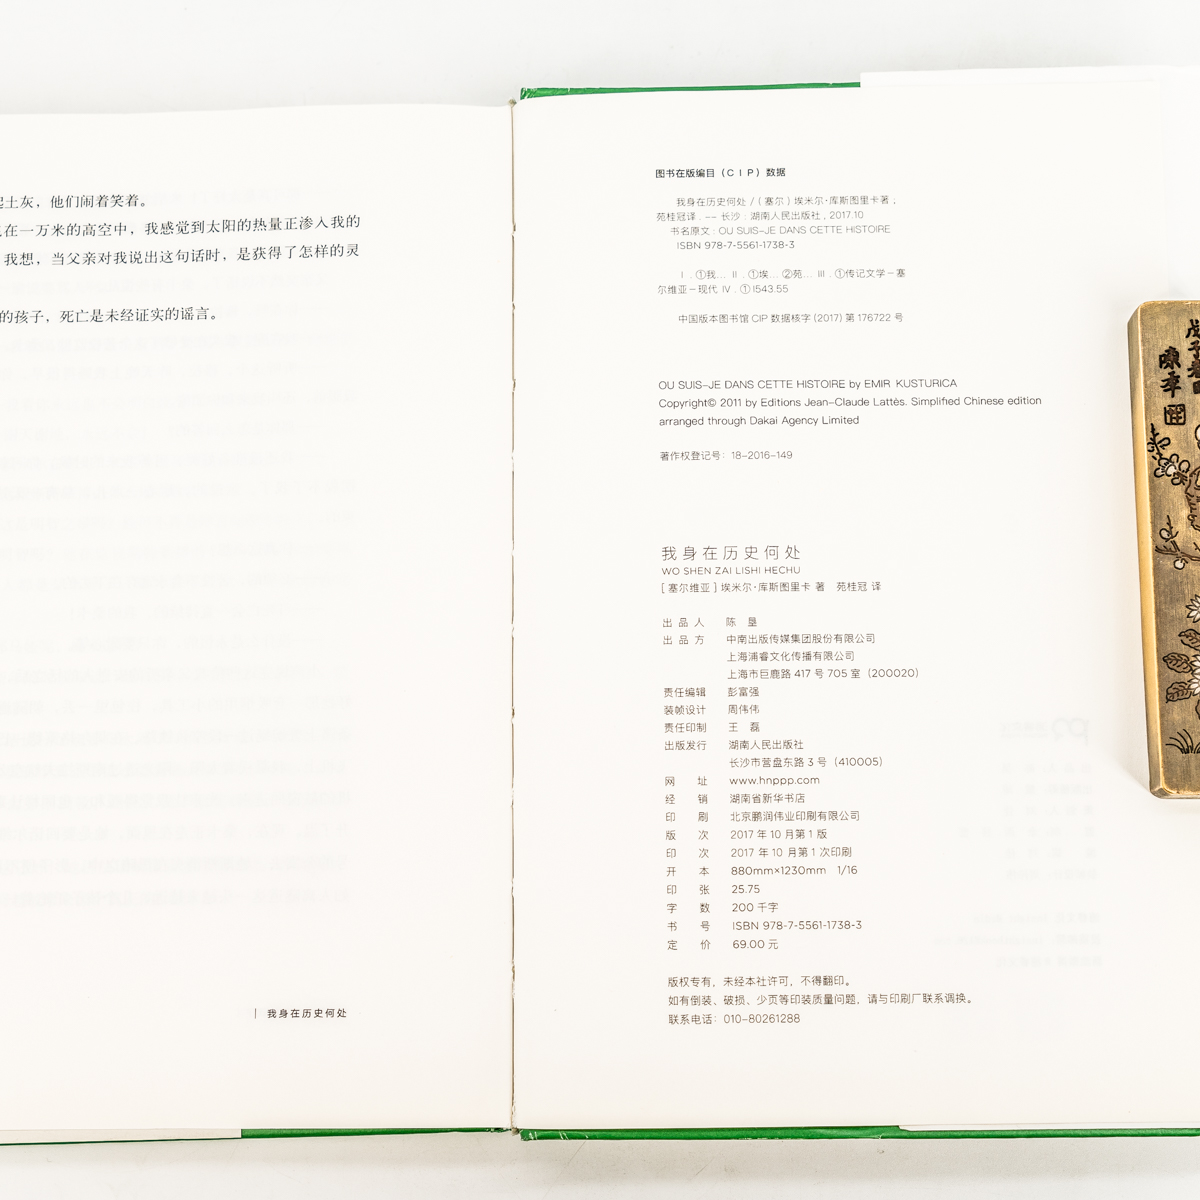 土灰，他们闹着笑着。
在一万米的高空中，我感觉到太阳的热量正渗入我的
我想，当父亲对我说出这句话时，是获得了怎样的灵
的孩子，死亡是未经证实的谣言。
| 我身在历史何处
图书在版编目（CIP）数据
我身在历史何处 /（塞尔）埃米尔·库斯图里卡著；
苑桂冠译. -- 长沙：湖南人民出版社, 2017.10
书名原文：OU SUIS-JE DANS CETTE HISTOIRE
ISBN 978-7-5561-1738-3
Ⅰ. ①我… Ⅱ. ①埃… ②苑… Ⅲ. ①传记文学－塞
尔维亚－现代 Ⅳ. ① I543.55
中国版本图书馆 CIP 数据核字 (2017) 第 176722 号
OU SUIS-JE DANS CETTE HISTOIRE by EMIR KUSTURICA
Copyright© 2011 by Editions Jean-Claude Lattès. Simplified Chinese edition
arranged through Dakai Agency Limited
著作权登记号：18-2016-149
我身在历史何处
WO SHEN ZAI LISHI HECHU
[ 塞尔维亚 ] 埃米尔·库斯图里卡 著 苑桂冠 译
出品人 陈 垦
出品方 中南出版传媒集团股份有限公司
上海浦睿文化传播有限公司
上海市巨鹿路 417 号 705 室（200020）
责任编辑 彭富强
装帧设计 周伟伟
责任印制 王 磊
出版发行 湖南人民出版社
长沙市营盘东路 3 号（410005）
网 址 www.hnppp.com
经 销 湖南省新华书店
印 刷 北京鹏润伟业印刷有限公司
版 次 2017 年 10 月第 1 版
印 次 2017 年 10 月第 1 次印刷
开 本 880mm×1230mm 1/16
印 张 25.75
字 数 200 千字
书 号 ISBN 978-7-5561-1738-3
定 价 69.00 元
版权专有，未经本社许可，不得翻印。
如有倒装、破损、少页等印装质量问题，请与印刷厂联系调换。
联系电话：010-80261288